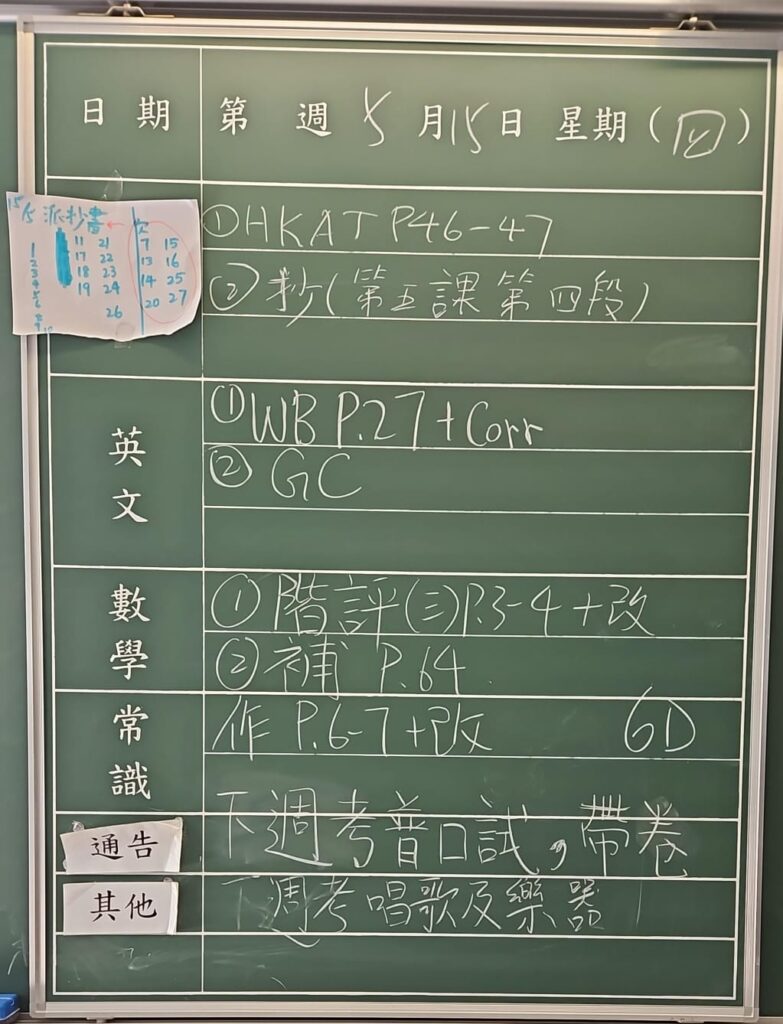 日期 第 週 5月15日 星期(四)
15/5 派抄書 欠
1 11 21 7 15
2 17 22 13 16
3 18 23 14 25
4 19 24 20 27
5
6 26
8
9 10
①HKAT P46-47
②抄(第五課第四段)
英文
①WB P.27+Corr
②GC
數學
①階評(三)P.3-4+改
②補 P.64
常識
作 P.6-7+改 6D
通告 下週考普口試，帶卷
其他 下週考唱歌及樂器